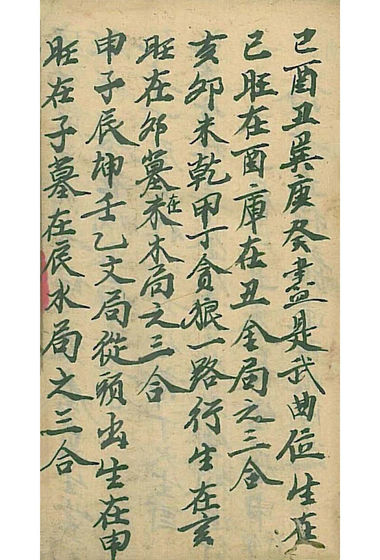 巳酉丑巽庚癸盡是武曲位生在
巳旺在酉庫在丑金局之三合
亥卯未乾甲丁貪狼一路行生在亥
旺在卯墓在未木局之三合
申子辰坤壬乙文局從頭出生在申
旺在子墓在辰水局之三合